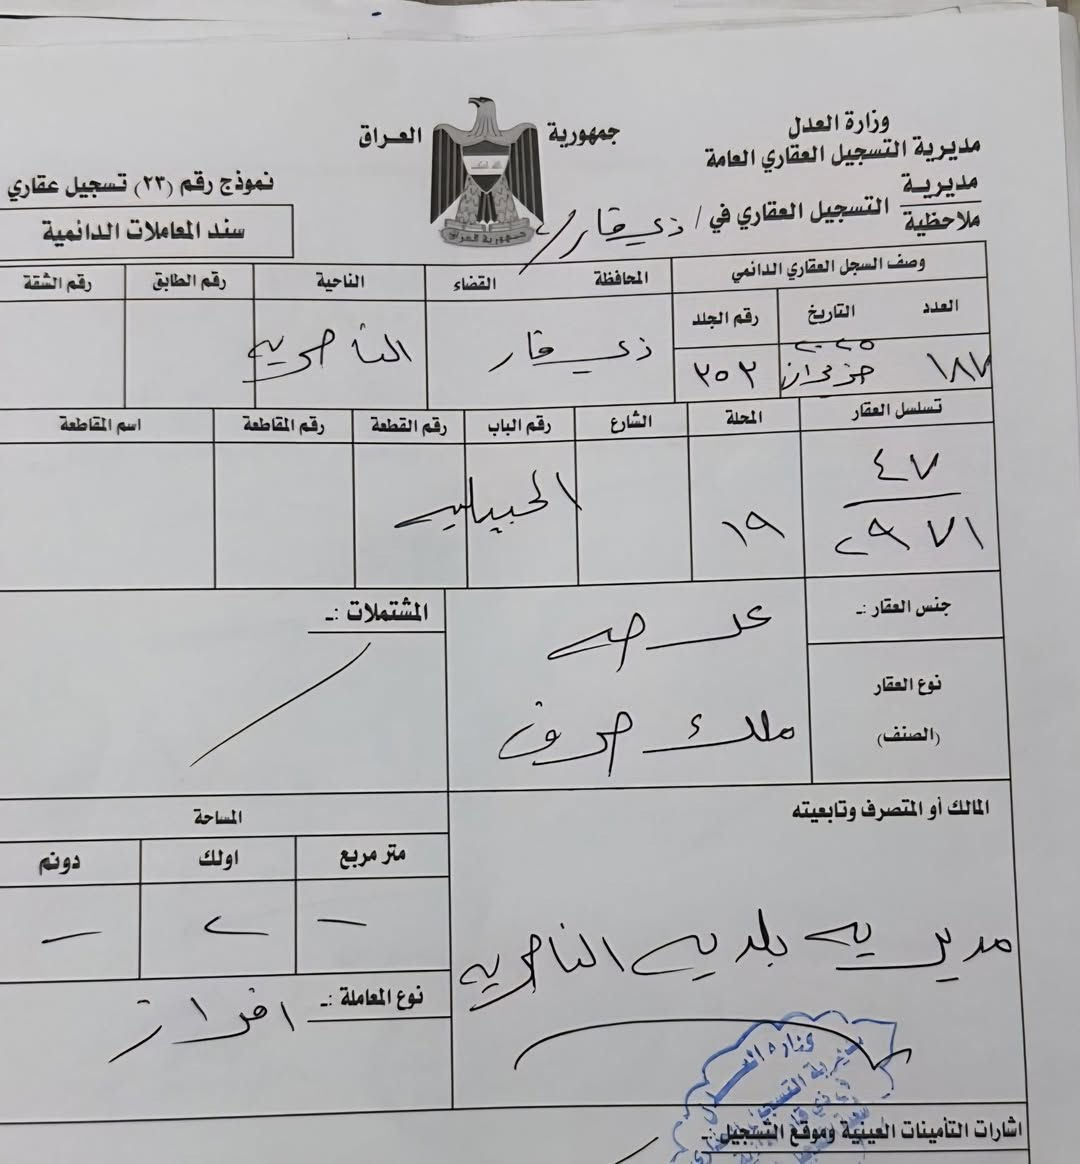 جمهورية العراق
وزارة العدل
مديرية التسجيل العقاري العامة
مديرية
ملاحظية
التسجيل العقاري في / ذي قار
نموذج رقم (٢٣) تسجيل عقاري
سند المعاملات الدائمية
وصف السجل العقاري الدائمي
العدد التاريخ رقم الجلد
١٨٧ ٢٠٢٥ حزيران ٣٥٣
المحافظة القضاء الناحية رقم الطابق رقم الشقة
ذي قار الناصريه
تسلسل العقار المحلة الشارع رقم الباب رقم القطعة رقم المقاطعة اسم المقاطعة
٤٧
٢٩٧١ ١٩
جنس العقار :ـ
عرصه
نوع العقار
(الصنف)
ملك صرف
المشتملات :ـ
المالك أو المتصرف وتابعيته
مديريه بلديه الناصريه
المساحة
متر مربع اولك دونم
– ٢ –
نوع المعاملة :ـ افراز
وزارة العدل
مديرية التسجيل
اشارات التأمينات العينية وموقع التسجيل :ـ